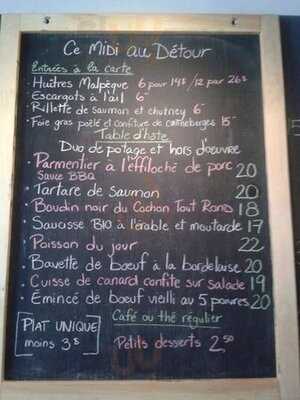 Ce Midi au Détour
Entrées à la carte
• Huîtres Malpèque 6 pour 14$ /12 par 26$
• Escargots à l'ail 6-
• Rillette de saumon et chutney 6-
• Foie gras poêlé et confiture de canneberges 15-
Table d'hôte
Duo de potage et hors d'oeuvre
• Parmentier à l'effiloché de porc 20
Sauce BBQ
• Tartare de saumon 20
• Boudin noir du Cochon Tout Rond 18
• Saucisse BIO à l'érable et moutarde 17
Poisson du jour 22
• Bavette de boeuf à la bordelaise 20
• Cuisse de canard confite sur salade 19
• Émincé de boeuf vieilli au 5 poivres 20
PLAT UNIQUE
moins 3$
Café ou thé régulier
Petits desserts 2.50